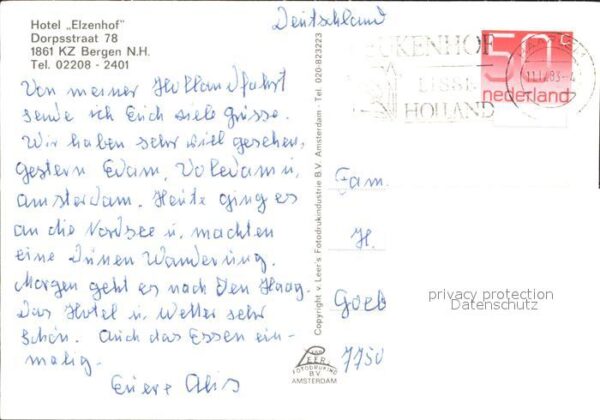 Hotel „Elzenhof"
Dorpsstraat 78
1861 KZ Bergen N.H.
Tel. 02208 - 2401
Von meiner Hollandfahrt
sende ich Euch viele Grüsse.
Wir haben sehr viel gesehen,
gestern Edam, Voledam u.
Amsterdam. Heute ging es
an die Nordsee u. machten
eine Dünen Wanderung.
Morgen geht es nach Den Haag.
Das Hotel u. Wetter sehr
schön. Auch das Essen ein-
malig.
Euere
Copyright v. Leer's Fotodrukindustrie B.V. Amsterdam - Tel. 020-823223
VAN LEER
FOTODRUKIND
B.V.
AMSTERDAM
Deutschland
KEUKENHOF
LISSE
HOLLAND
50 c
nederland
Fam.
H.
Goeb
7750
privacy protection
Datenschutz